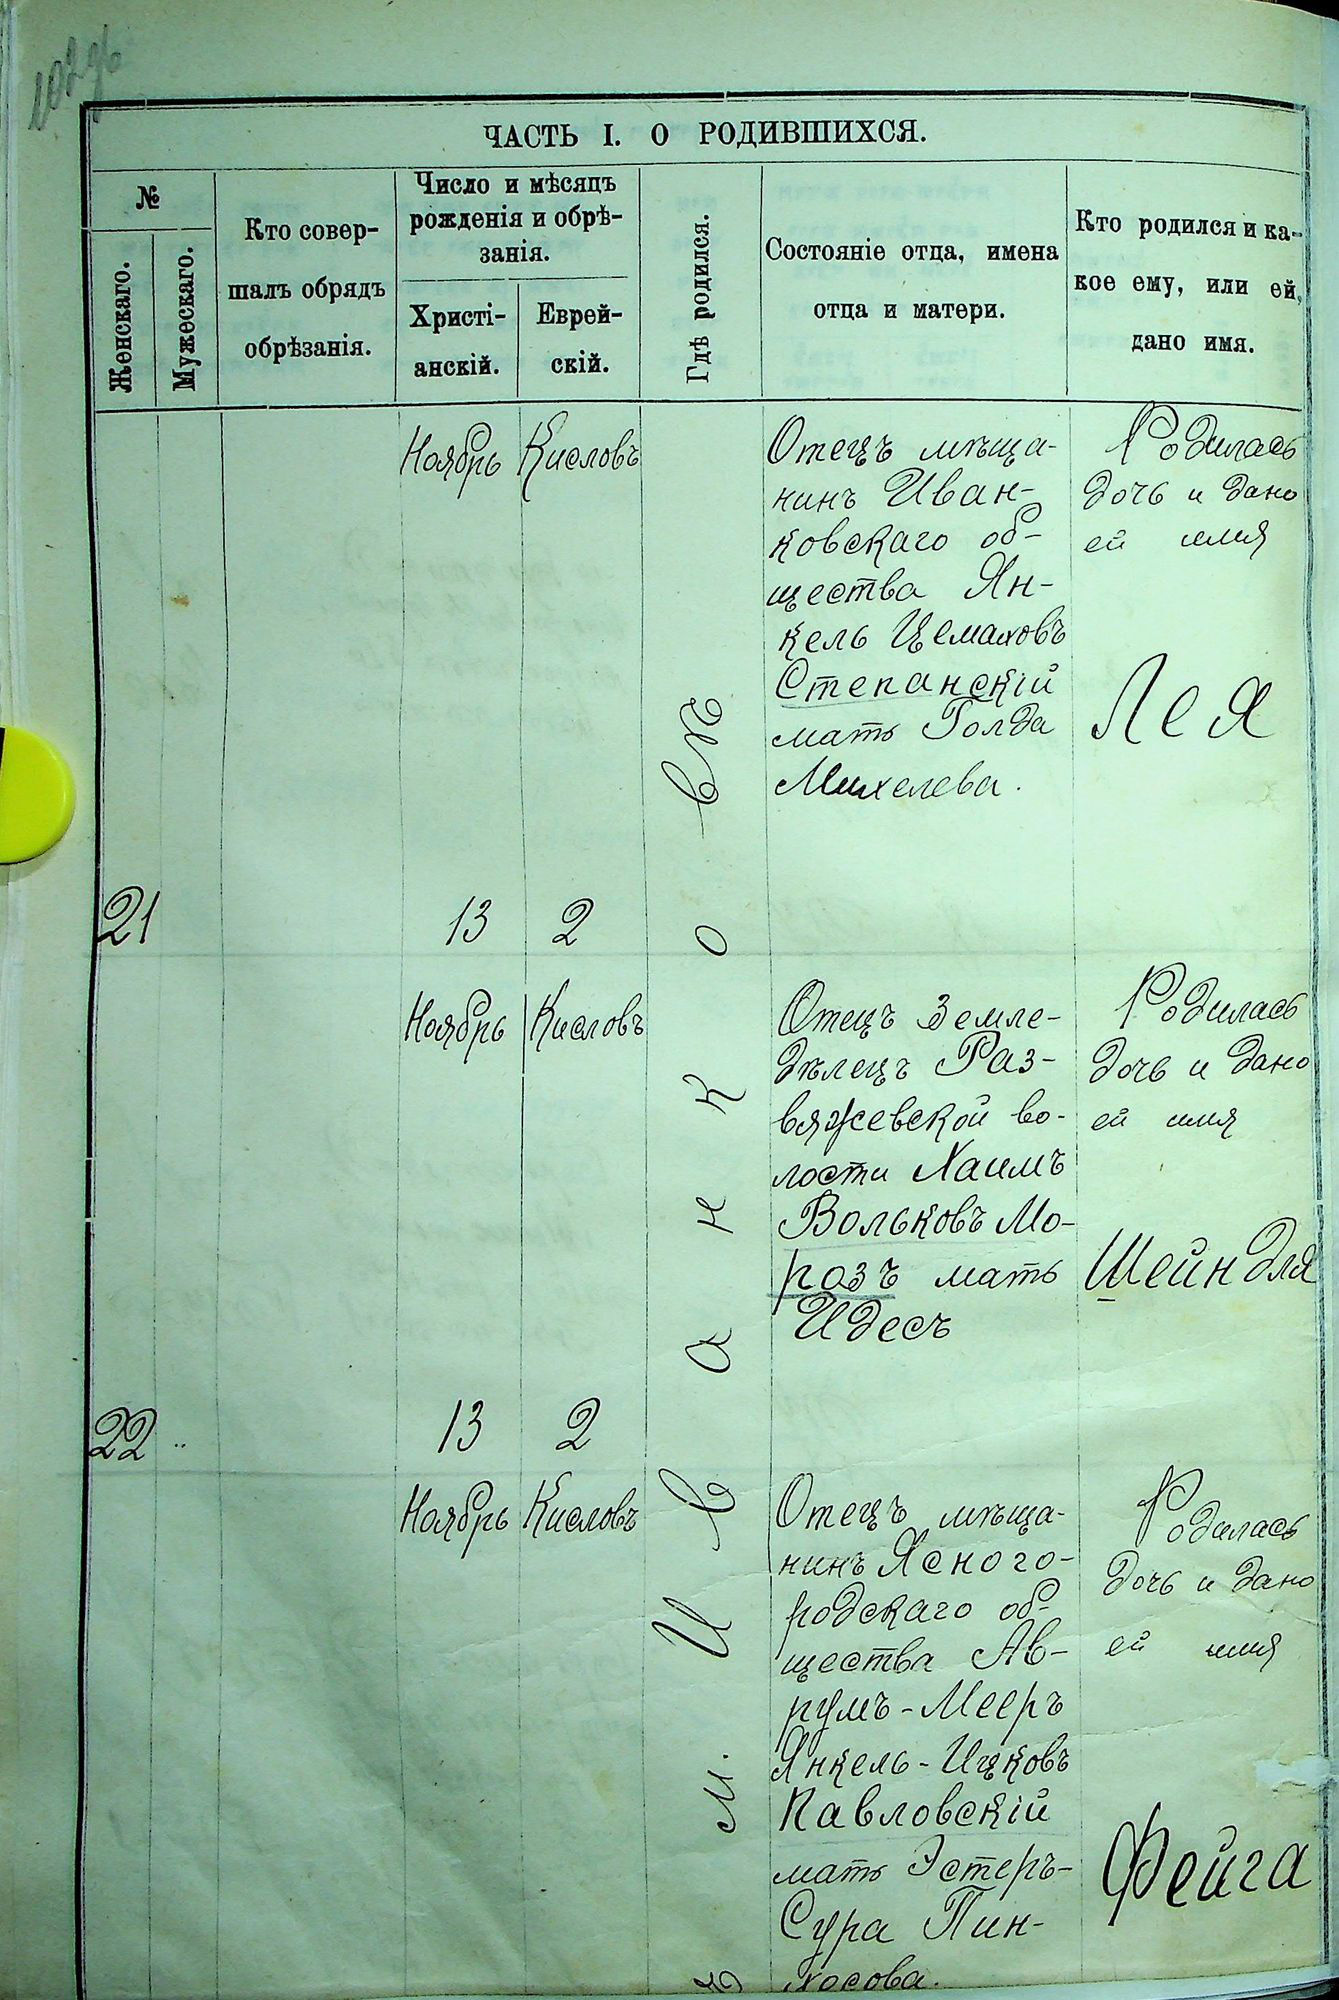 ЧАСТЬ I. О РОДИВШИХСЯ.
№
Женскаго.
Мужескаго.
Кто совер-
шалъ обрядъ
обрѣзанія.
Число и мѣсяцъ
рожденія и обрѣ-
занія.
Христі-
анскій.
Еврей-
скій.
Гдѣ родился.
Состояніе отца, имена
отца и матери.
Кто родился и ка-
кое ему, или ей,
дано имя.
Ноябрь
Кисловъ
Отецъ мѣща-
нинъ Иван-
ковскаго об-
щества Ян-
кель Цемаховъ
Степанскій
мать Голда
Михелева.
Родилась
дочь и дано
ей имя
Лея
21
13
2
Ноябрь
Кисловъ
Отецъ Земле-
дѣлецъ Раз-
вяжевской во-
лости Хаимъ
Вольковъ Мо-
розъ мать
Идесъ
Родилась
дочь и дано
ей имя
Шейндля
22
13
2
Ноябрь
Кисловъ
Отецъ мѣща-
нинъ Ясного-
родскаго об-
щества Ав-
румъ-Мееръ
Янкель-Ицковъ
Павловскій
мать Эстеръ-
Сура Пин-
хосова.
Родилась
дочь и дано
ей имя
Фейга
м. Иванковѣ